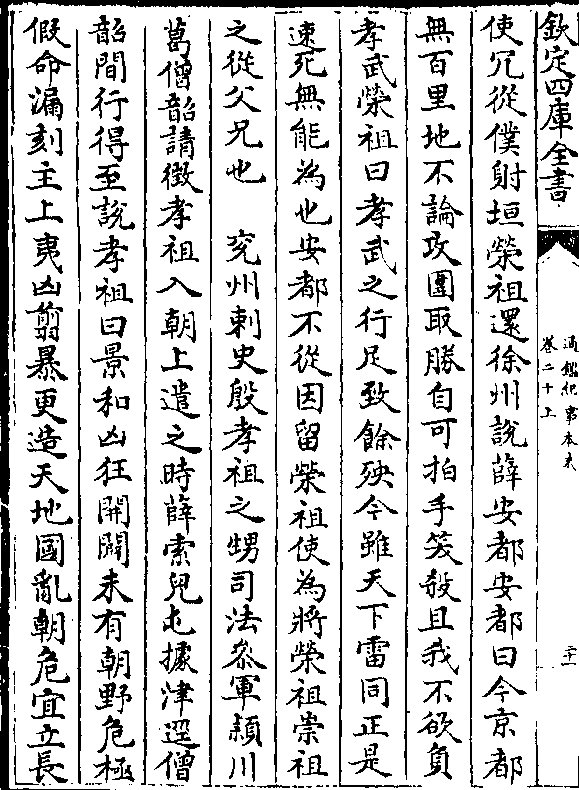 欽定四庫全書
通鑑紀事本末
卷二十上
二十一
使冗從僕射垣榮祖還徐州說薛安都安都曰今京都
無百里地不論攻圍取勝自可拍手笑殺且我不欲負
孝武榮祖曰孝武之行足致餘殃今雖天下雷同正是
速死無能為也安都不從因留榮祖使為將榮祖崇祖
之從父兄也　兖州刺史殷孝祖之甥司法參軍潁川
葛僧韶請徵孝祖入朝上遣之時薛索兒屯據津逕僧
韶間行得至說孝祖曰景和凶狂開闢未有朝野危極
假命漏刻主上夷凶翦暴更造天地國亂朝危宜立長